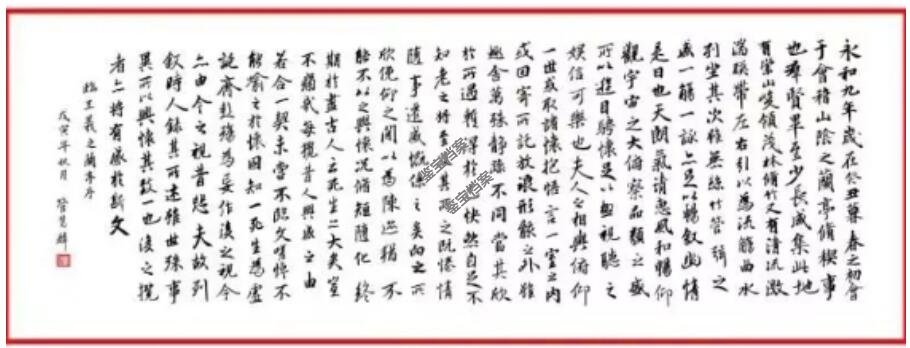 永和九年歲在癸丑暮春之初會
于會稽山陰之蘭亭脩稧事
也群賢畢至少長咸集此地
有崇山峻領茂林脩竹又有清流激
湍暎帶左右引以為流觴曲水
列坐其次雖無絲竹管弦之
盛一觴一詠亦足以暢敘幽情
是日也天朗氣清惠風和暢仰
觀宇宙之大俯察品類之盛
所以遊目騁懷足以極視聽之
娛信可樂也夫人之相與俯仰
一世或取諸懷抱悟言一室之內
或因寄所託放浪形骸之外雖
趣舍萬殊靜躁不同當其欣
於所遇暫得於己快然自足不
知老之將至及其所之既惓情
隨事遷感慨係之矣向之所
欣俛仰之間以為陳迹猶不
能不以之興懷況脩短隨化終
期於盡古人云死生亦大矣豈
不痛哉每攬昔人興感之由
若合一契未嘗不臨文嗟悼不
能喻之於懷固知一死生為虛
誕齊彭殤為妄作後之視今
亦由今之視昔悲夫故列
敘時人錄其所述雖世殊事
異所以興懷其致一也後之攬
者亦將有感於斯文
臨王羲之蘭亭序
戊寅年秋月
鉴宝档案
鉴宝档案